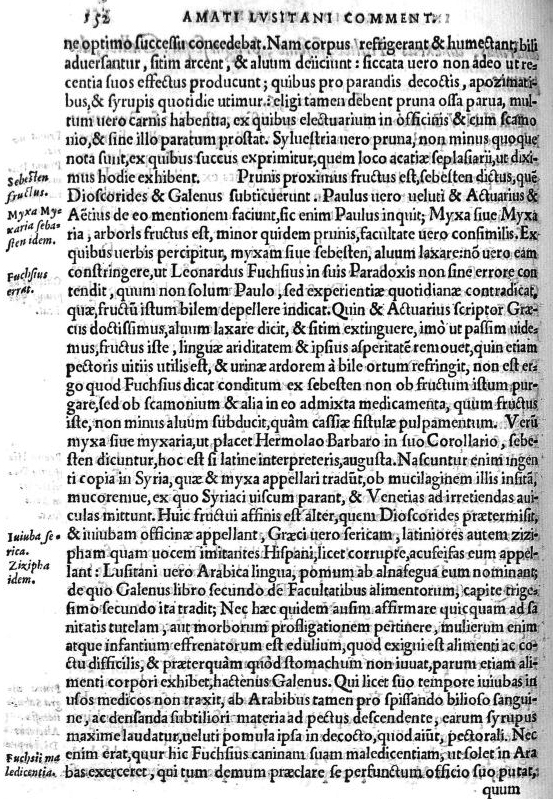 152 AMATI LVSITANI COMMENT.
ne optimo successu concedebat. Nam corpus refrigerant & humectant, bili
aduersantur, sitim arcent, & aluum deijciunt: siccata uero non adeo ut re-
centia suos effectus producunt; quibus pro parandis decoctis, apozimati-
bus, & syrupis quotidie utimur: eligi tamen debent pruna ossa parua, mul-
tum uero carnis habentia, ex quibus electuarium in officinis & cum scamo
nio, & sine illo paratum prostat. Syluestria uero pruna, non minus quoque
nota sunt, ex quibus succus exprimitur, quem loco acatiæ seplasiarij, ut dixi-
mus hodie exhibent. Prunis proximus fructus est, sebesten dictus, quē
Sebesten
fructus.
Dioscorides & Galenus subticuerunt. Paulus uero ueluti & Actuarius &
Myxa My-
xaria seba-
sten idem.
Aëtius de eo mentionem faciunt, sic enim Paulus inquit; Myxa siue Myxa
ria, arboris fructus est, minor quidem prunis, facultate uero consimilis. Ex
quibus uerbis percipitur, myxam siue sebesten, aluum laxare: nō uero eam
Fuchsius
errat.
constringere, ut Leonardus Fuchsius in suis Paradoxis non sine errore con
tendit, quum non solum Paulo, sed experientiæ quotidianæ contradicat,
quæ, fructū istum bilem depellere indicat. Quin & Actuarius scriptor Græ-
cus doctissimus, aluum laxare dicit, & sitim extinguere, imò ut passim uide-
mus, fructus iste, linguæ ariditatem & ipsius asperitatē remouet, quin etiam
pectoris uitiis utilis est, & urinæ ardorem à bile ortum refringit, non est er-
go quod Fuchsius dicat conditum ex sebesten non ob fructum istum pur-
gare, sed ob scamonium & alia in eo admixta medicamenta, quum fructus
iste, non minus aluum subducit, quàm cassiæ fistulæ pulpamentum. Verū
myxa siue myxaria, ut placet Hermolao Barbaro in suo Corollario, sebe-
sten dicuntur, hoc est si latine interpreteris, augusta. Nascuntur enim ingen
ti copia in Syria, quæ & myxa appellari tradūt, ob mucilaginem illis insitā,
mucoremue, ex quo Syriaci uiscum parant, & Venetias ad irretiendas aui-
culas mittunt. Huic fructui affinis est alter, quem Dioscorides prætermisit,
Iuiuba se-
rica.
Zizipha
idem.
& iuiubam officinæ appellant, Græci uero sericam, latiniores autem zizi-
pham quam uocem imitantes Hispani, licet corrupte, acuseifas eum appel-
lant: Lusitani uero Arabica lingua, pomum ab alnafegua eum nominant;
de quo Galenus libro secundo de Facultatibus alimentorum, capite trige-
simo secundo ita tradit; Nec hæc quidem ausim affirmare quicquam ad sa
nitatis tutelam, aut morborum profligationem pertinere, mulierum enim
atque infantium effrenatorum est edulium, quod exigui est alimenti ac co-
ctu difficilis, & præterquàm quòd stomachum non iuuat, parum etiam ali-
menti corpori exhibet, hactenus Galenus. Qui licet suo tempore iuiubas in
usos medicos non traxit, ab Arabibus tamen pro spissando bilioso sangui-
ne, ac densanda subtiliori materia ad pectus descendente, earum syrupus
maxime laudatur, ueluti pomula ipsa in decocto, quod aiūt, pectorali. Nec
Fuchsii ma
ledicentia.
enim erat, quur hic Fuchsius caninam suam maledicentiam, ut solet in Ara
bas exerceret, qui tum demum præclare se perfunctum officio suo putat,
quum